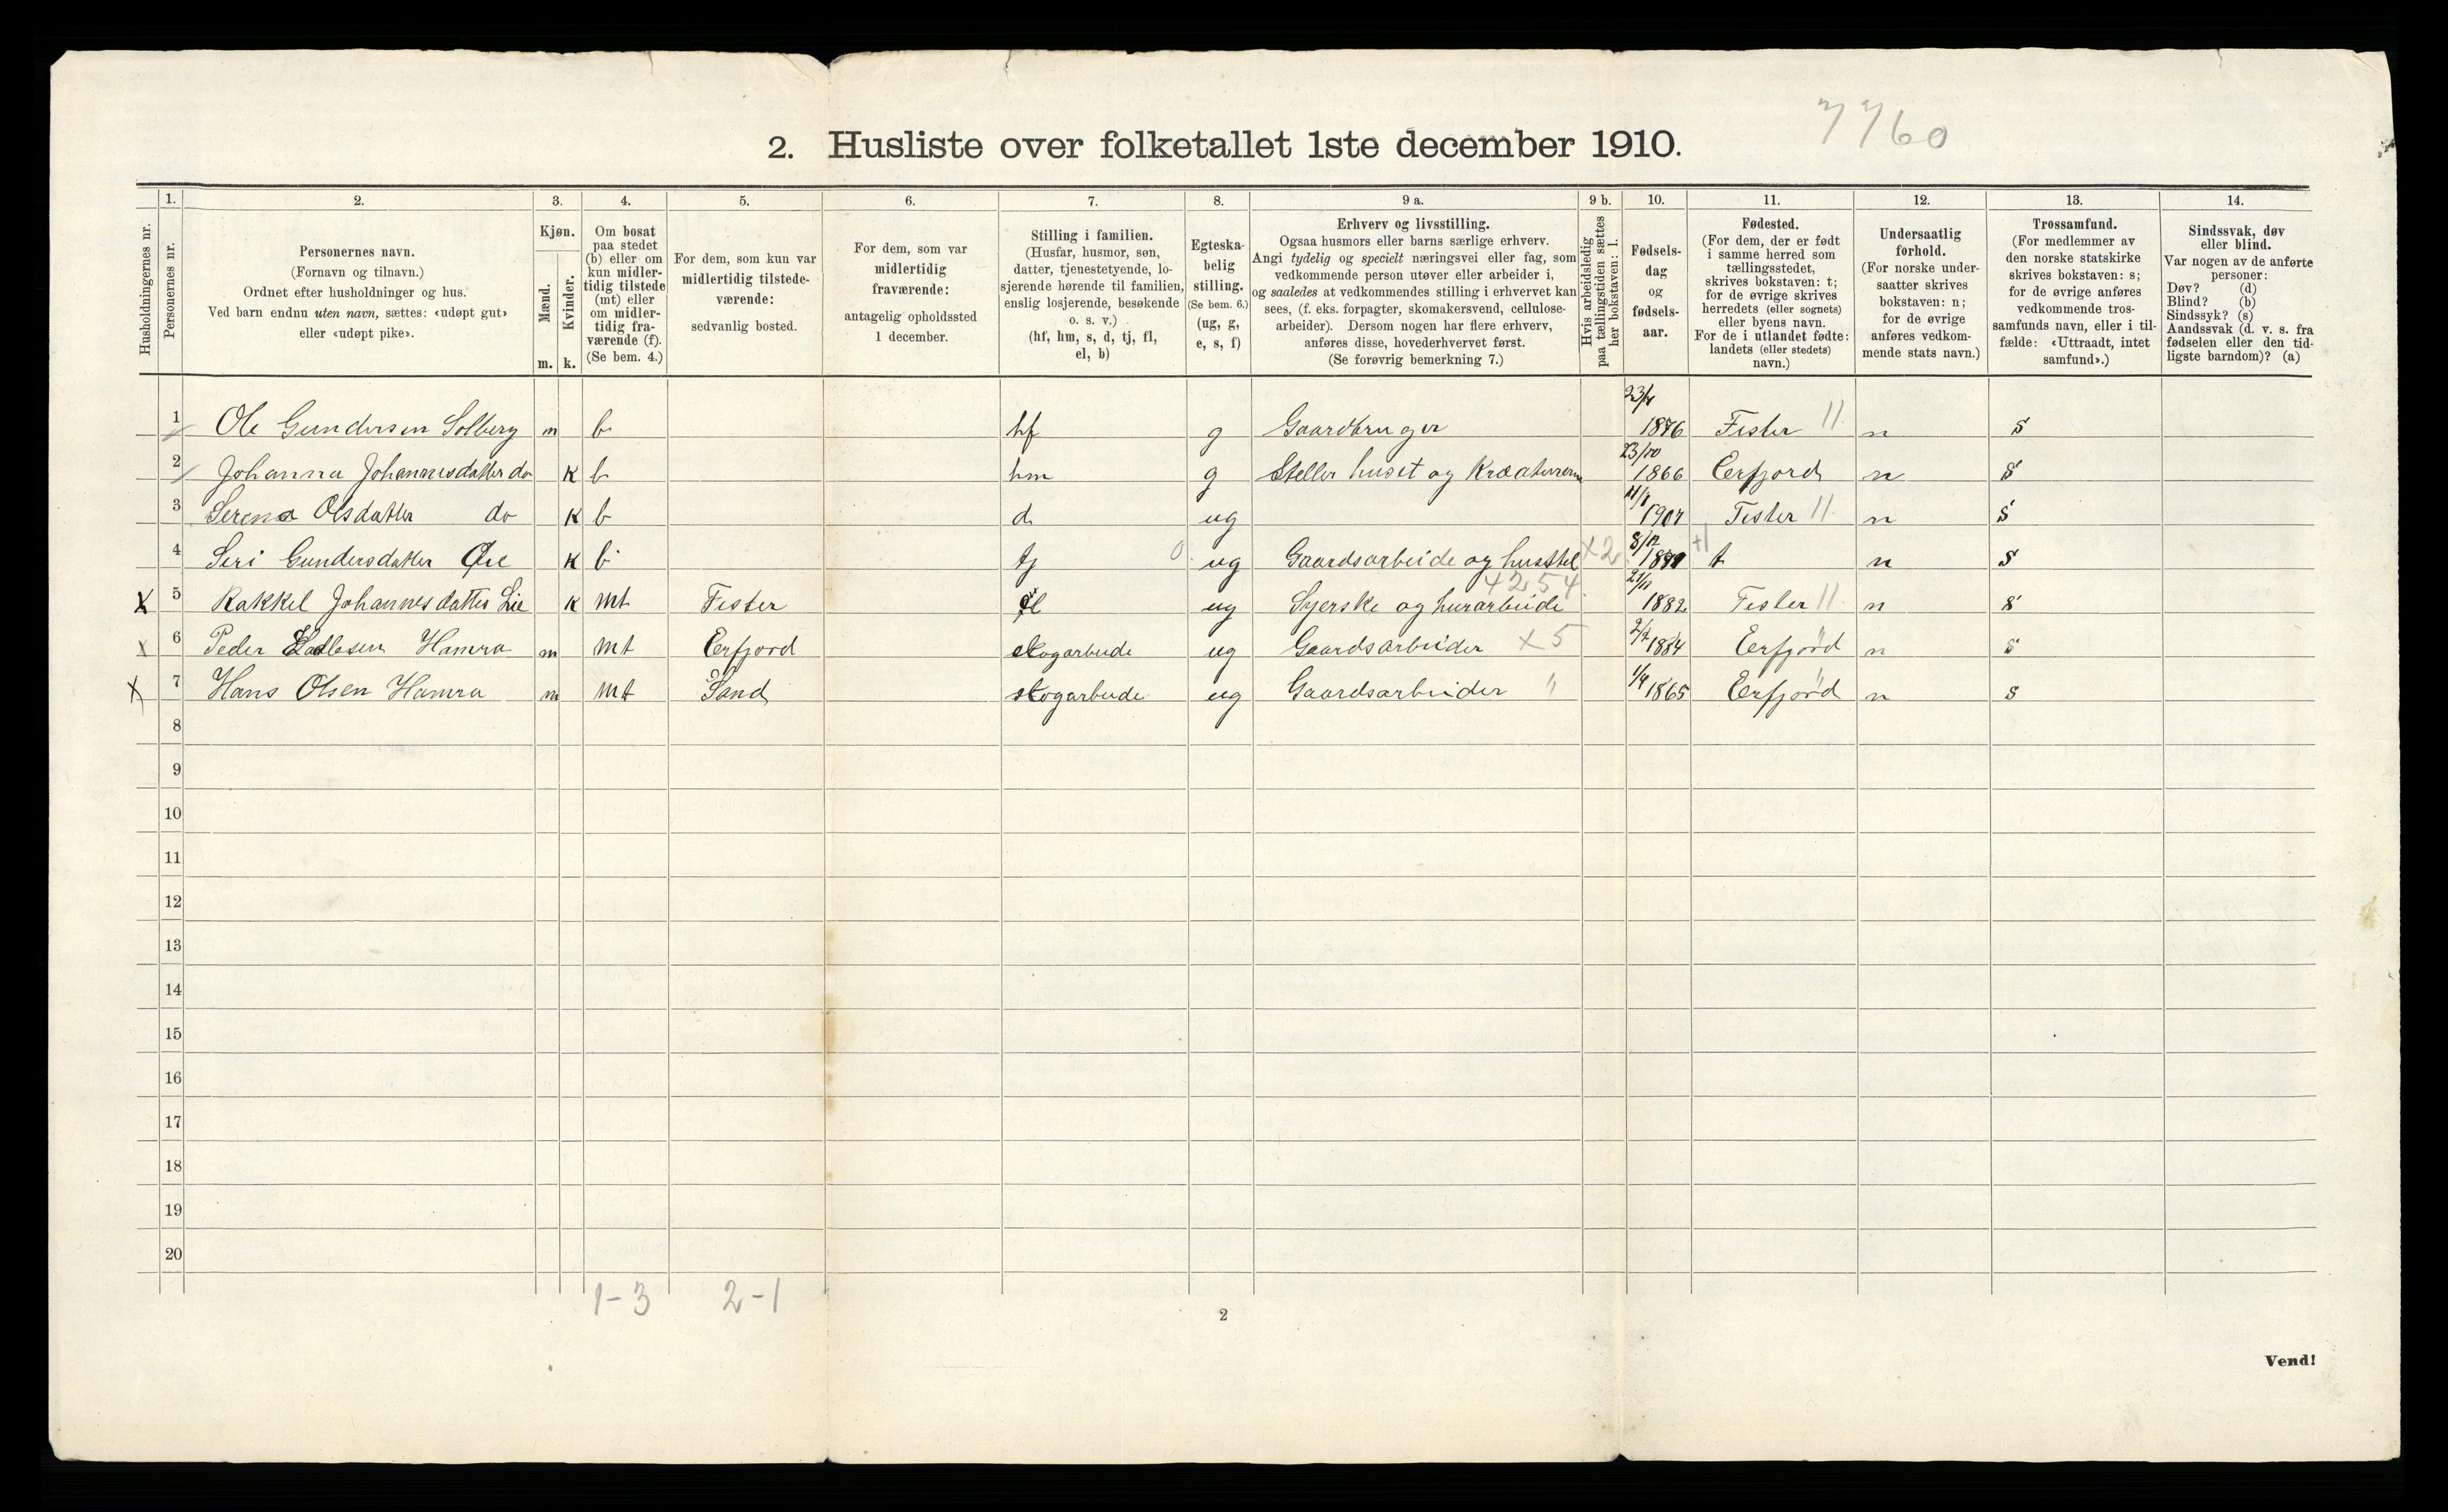 7760
2. Husliste over folketallet 1ste december 1910.
Husholdningernes nr.
1.
Personernes nr.
2.
Personernes navn.
(Fornavn og tilnavn.)
Ordnet efter husholdninger og hus.
Ved barn endnu uten navn, sættes: «udøpt gut»
eller «udøpt pike».
3.
Kjøn.
Mænd.
Kvinder.
m. k.
4.
Om bosat
paa stedet
(b) eller om
kun midler-
tidig tilstede
(mt) eller
om midler-
tidig fra-
værende (f).
(Se bem. 4.)
5.
For dem, som kun var
midlertidig tilstede-
værende:
sedvanlig bosted.
6.
For dem, som var
midlertidig
fraværende:
antagelig opholdssted
1 december.
7.
Stilling i familien.
(Husfar, husmor, søn,
datter, tjenestetyende, lo-
sjerende hørende til familien,
enslig losjerende, besøkende
o. s. v.)
(hf, hm, s, d, tj, fl,
el, b)
8.
Egteska-
belig
stilling.
(Se bem. 6.)
(ug, g,
e, s, f)
9 a.
Erhverv og livsstilling.
Ogsaa husmors eller barns særlige erhverv.
Angi tydelig og specielt næringsvei eller fag, som
vedkommende person utøver eller arbeider i,
og saaledes at vedkommendes stilling i erhvervet kan
sees, (f. eks. forpagter, skomakersvend, cellulose-
arbeider). Dersom nogen har flere erhverv,
anføres disse, hovederhvervet først.
(Se forøvrig bemerkning 7.)
9 b.
Hvis arbeidsledig
paa tællingstiden sættes
her bokstaven: l.
10.
Fødsels-
dag
og
fødsels-
aar.
11.
Fødested.
(For dem, der er født
i samme herred som
tællingsstedet,
skrives bokstaven: t;
for de øvrige skrives
herredets (eller sognets)
eller byens navn.
For de i utlandet fødte:
landets (eller stedets)
navn.)
12.
Undersaatlig
forhold.
(For norske under-
saatter skrives
bokstaven: n;
for de øvrige
anføres vedkom-
mende stats navn.)
13.
Trossamfund.
(For medlemmer av
den norske statskirke
skrives bokstaven: s;
for de øvrige anføres
vedkommende tros-
samfunds navn, eller i til-
fælde: «Uttraadt, intet
samfund».)
14.
Sindssvak, døv
eller blind.
Var nogen av de anførte
personer:
Døv? (d)
Blind? (b)
Sindssyk? (s)
Aandssvak (d. v. s. fra
fødselen eller den tid-
ligste barndom)? (a)
1 Ole Gundersen Solberg m b hf g Gaardbruger 1876 Fister 11 n s
2 Johanna Johannesdatter do k b hm g Steller huset og Kreaturerne 23/10 1866 Eerfjord n s
3 Serena Olsdatter do k b d ug 1907 Fister 11 n s
4 Seri Gundersdatter Øie k b tj 0 ug Gaardsarbeide og husstel x2 8/12 t n s
x 5 Rakkel Johannesdatter Lie k mt Fister ug Syerske og husarbeide 4254 1882 Fister 11 n s
x 6 Peder Hamra m mt Eerfjord skogarbeide ug Gaardsarbeider x5 1884 Eerfjord n s
x 7 Hans Olsen Hamra m mt Sand skogarbeide ug Gaardsarbeider " 1865 Eerfjord n s
8
9
10
11
12
13
14
15
16
17
18
19
20
1-3 2-1
2
Vend!